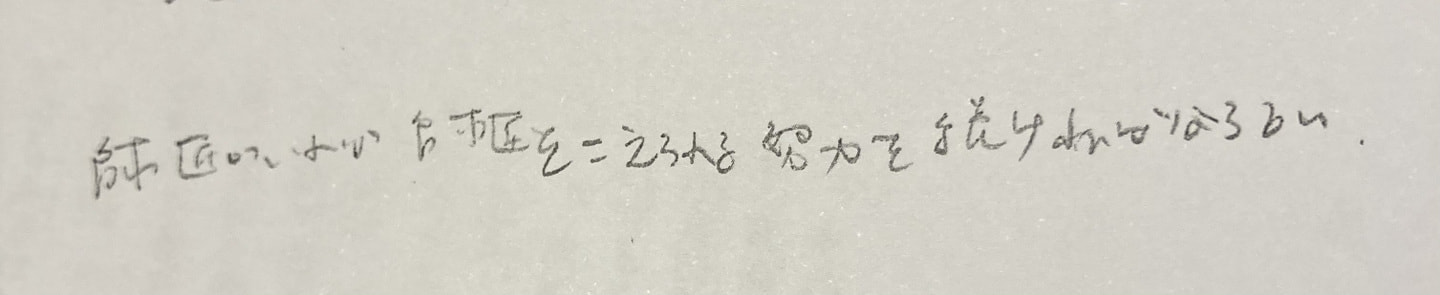 師匠のいない師匠をこえる努力を続けねばならない.